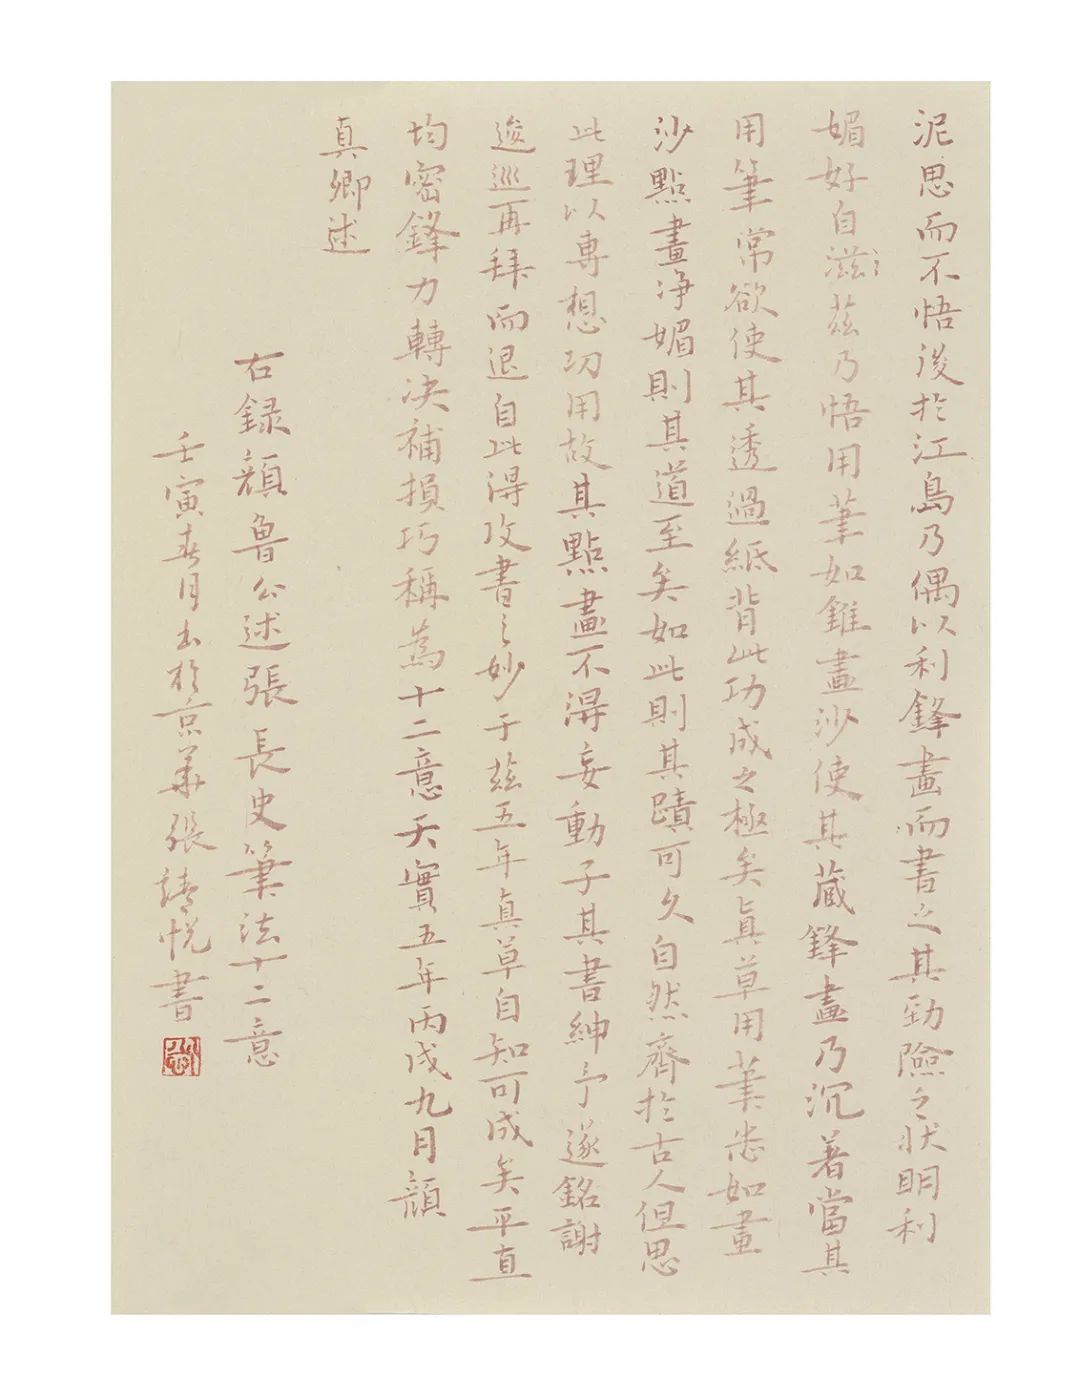 泥思而不悟後於江島乃偶以利鋒畫而書之其勁險之狀明利
媚好自滋〻茲乃悟用筆如錐畫沙使其蔵鋒畫乃沉著當其
用筆常欲使其透過紙背此功成之極矣真草用筆悉如畫
沙點畫净媚則其道至矣如此則其蹟可久自然齊於古人但思
此理以專想功用故其點畫不得妄動子其書紳予遂銘謝
逡巡再拜而退自此得攻書之妙于茲五年真草自知可成矣平直
均密鋒力轉决補損巧稱為十二意天寶五年丙戌九月顔
真卿述
右録顔魯公述張長史筆法十二意
壬寅春月書於京華張靖悦書